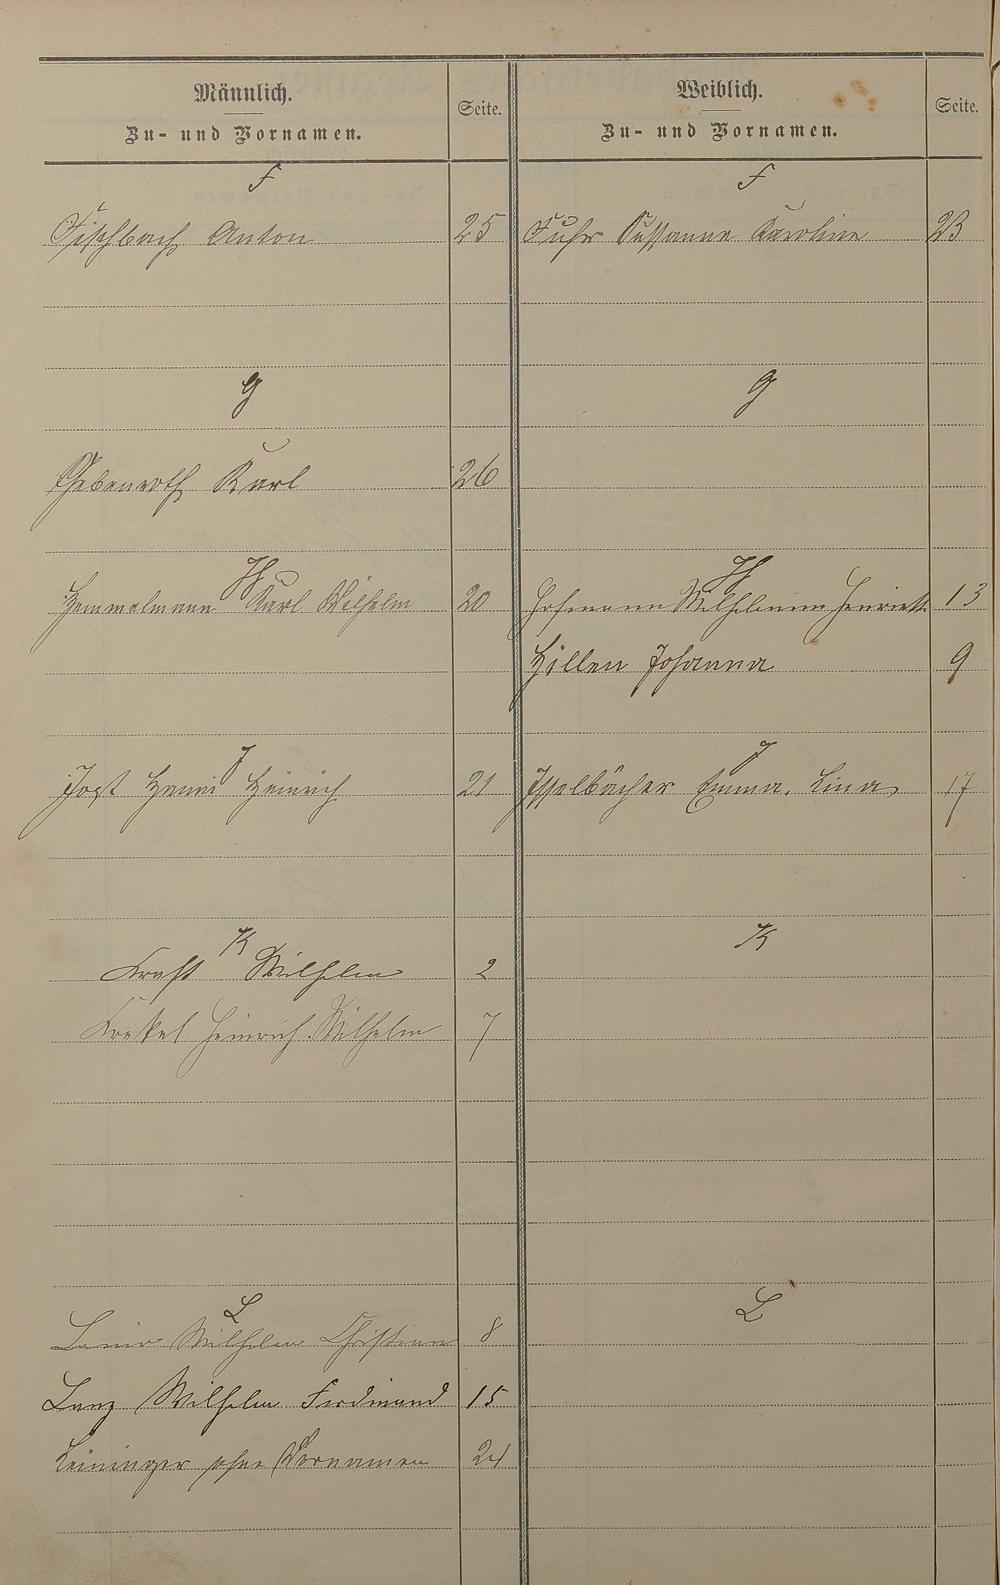 Männlich.
Zu- und Vornamen.
Seite.
F
Fischbach Anton 25
G
Gebenroth Karl 26
H
Hemmelmann Karl Wilhelm 20
J
Jost Heinrich 21
K
Kraft Wilhelm 2
Krekel Heinrich Wilhelm 7
L
Wilhelm Christian 8
Lanz Wilhelm Ferdinand 15
Leininger ohne Vornamen 24
Weiblich.
Zu- und Vornamen.
Seite.
F
Fuhr Sussanna Karoline 23
G
H
Hofmann Wilhelmine Henriette 13
Hillen Johanna 9
J
Isselbächer Emma Lina 17
K
L